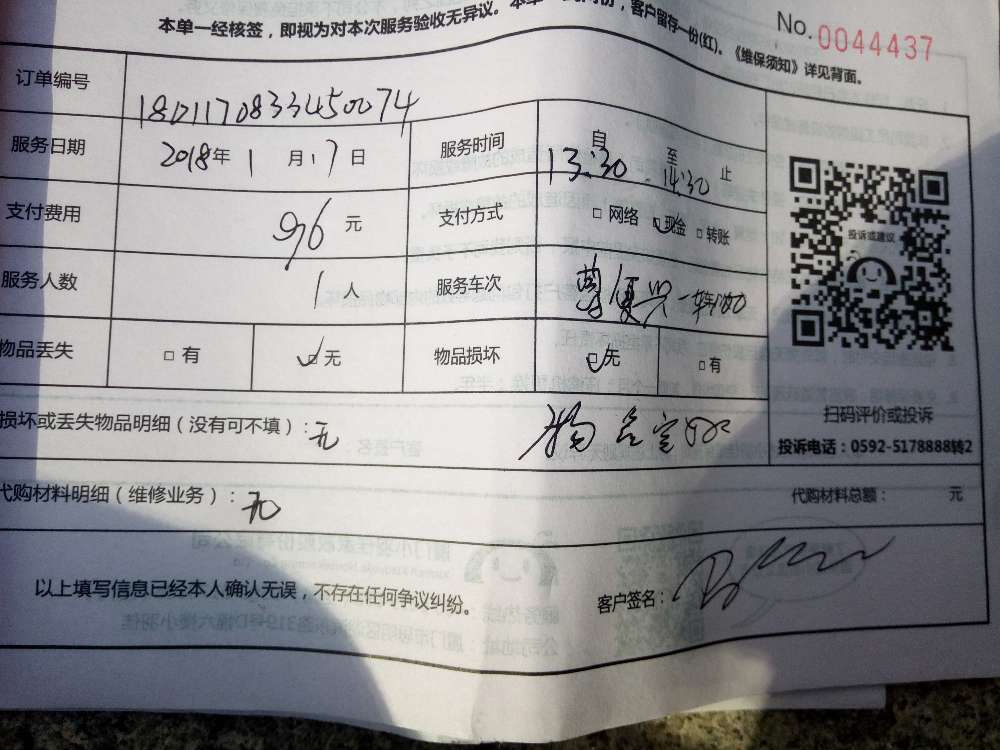 本单一经核签，即视为对本次服务验收无异议。本单一 客户留存一份(红)。《维保须知》详见背面。
No. 0044437
订单编号 18D1170833450074
服务日期 2018年 1 月 17 日 服务时间 自 13:30 至 14:30 止
支付费用 96 元 支付方式 □ 网络 ☑ 现金 □ 转账
投诉或建议
服务人数 1 人 服务车次
物品丢失 □ 有 ☑ 无 物品损坏 ☑ 无 □ 有
损坏或丢失物品明细（没有可不填）: 无 物品完好
扫码评价或投诉
投诉电话：0592-5178888转2
代购材料明细（维修业务）: 无 代购材料总额： 元
以上填写信息已经本人确认无误，不存在任何争议纠纷。 客户签名：